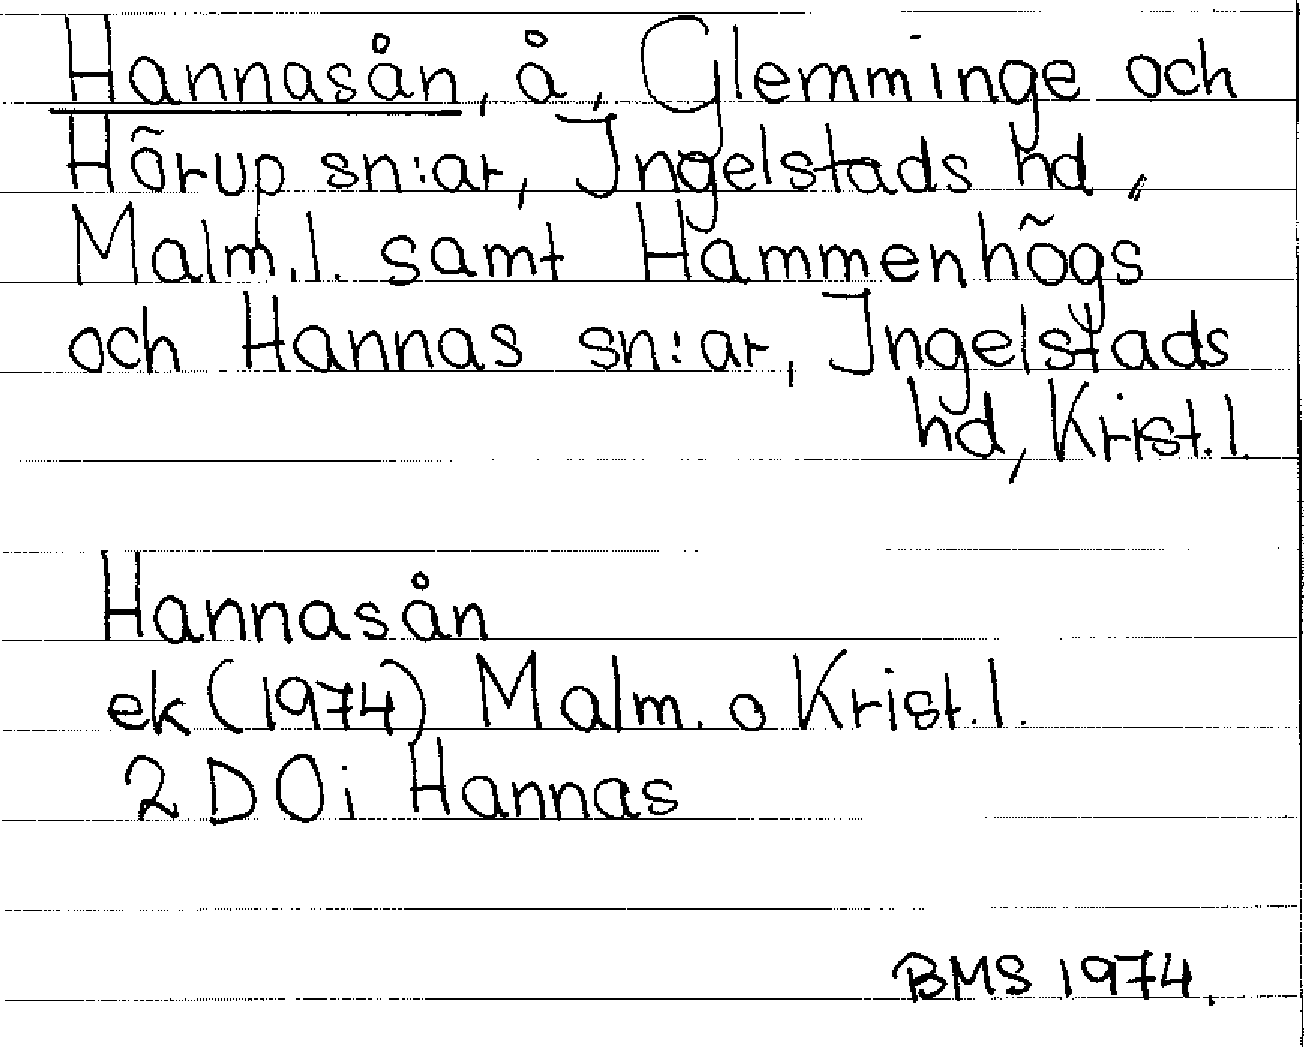 Hannasån, å, Glemminge och
Hörup sn:ar, Ingelstads hd,
Malm.l. samt Hammenhögs
och Hannas sn:ar, Ingelstads
hd, Krist.l.
Hannasån
ek (1974) Malm. o Krist.l.
2 D O i Hannas
BMS 1974.